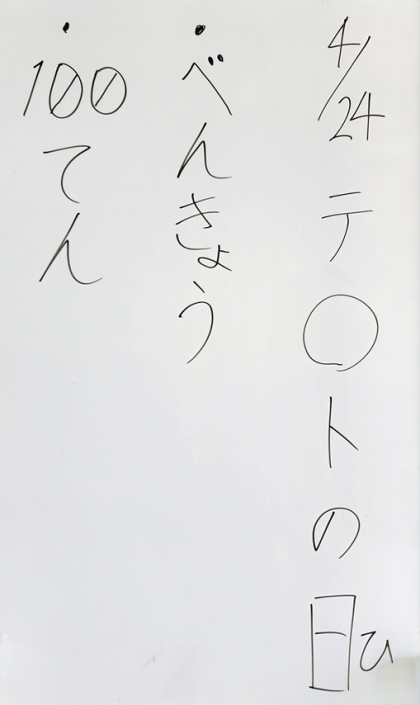 4/24 テ〇トの日ひ
・べんきょう
・100てん